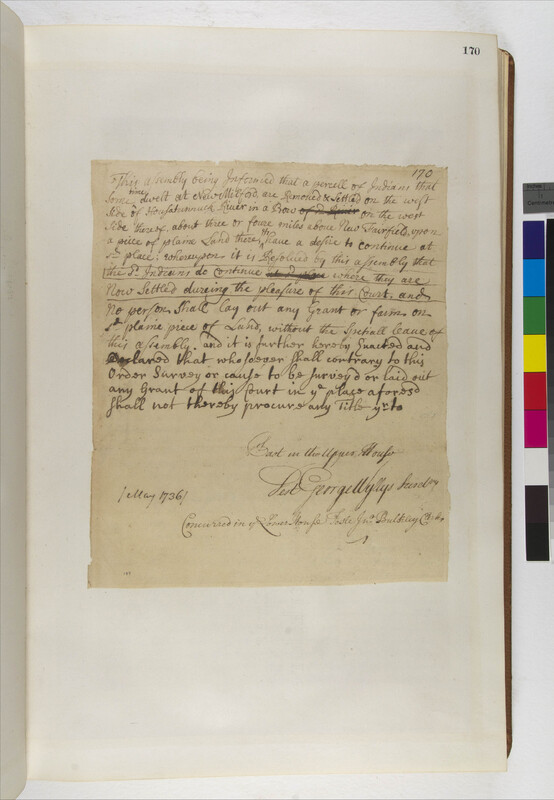 170
170
This assembly being Informed that a percell of Indians that
Some time dwelt at New Milford, are Removed & Setled on the west
Side of Housatunnuck River in a Bow of ye River on the west
Side thereof, about three or foure miles above New Fairfield, upon
a piece of plaine Land there, & have a desire to continue at
sd place: whereupon it is Resolved by this assembly that
the sd Indians do continue where they are
Now Setled dureing the pleasure of this Court, and
No person Shall lay out any Grant or farm on
sd plaine piece of Land, without the Speciall leave of
this assembly. and it is further hereby Enacted and
Declared that whosoever Shall contrary to this
Order Survey or cause to be Survey'd or laid out
any Grant of this Court in ye place aforesd
Shall not thereby procure any Title yrto
Past in the Upper House
Test George Wyllys Secretry
[May 1736]
Concurred in ye Lower House Teste Jno Bulkley Clerk